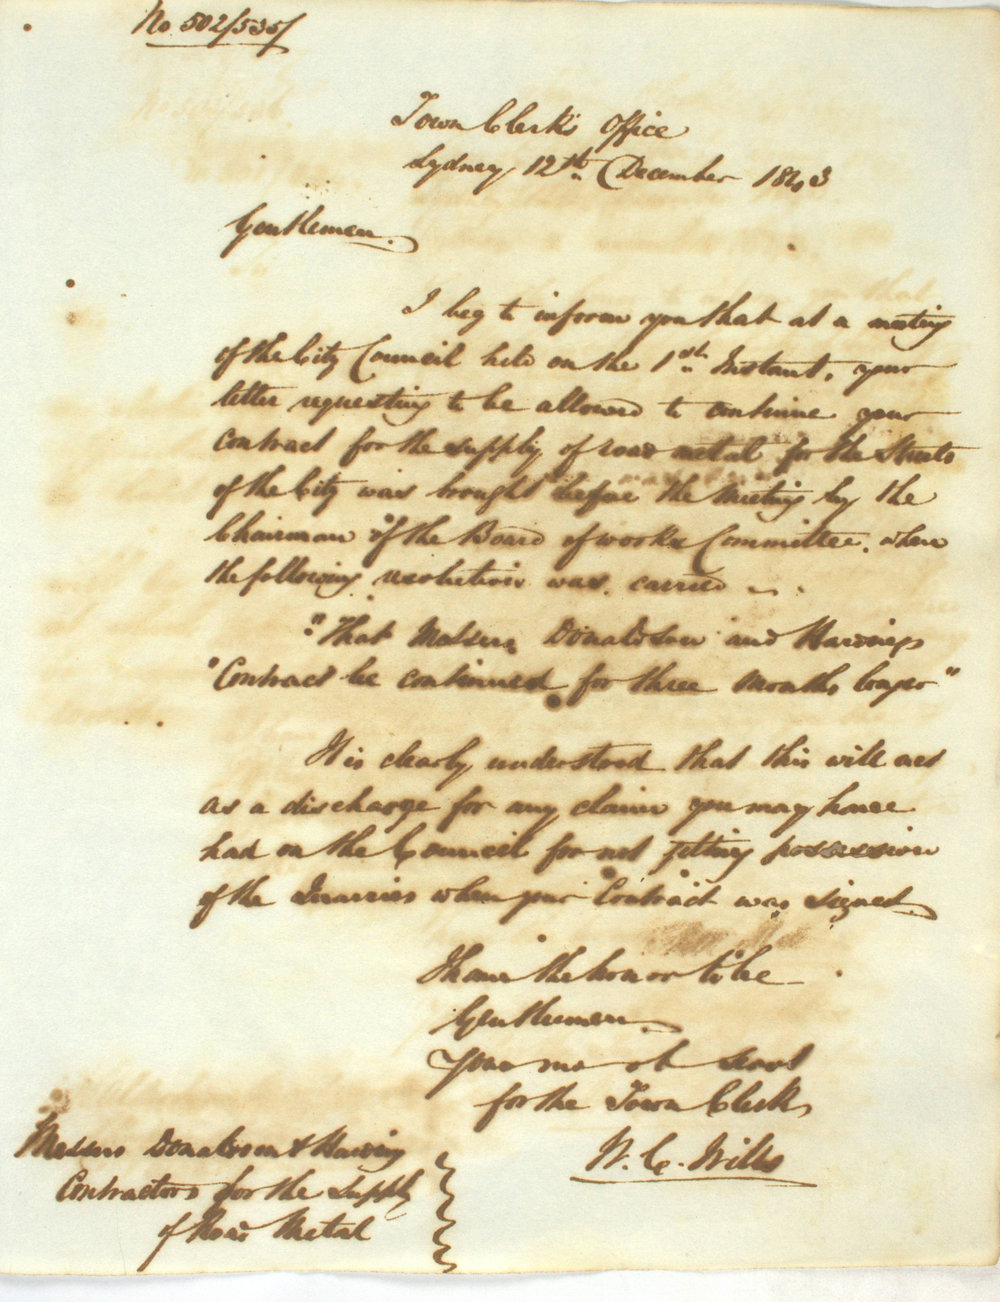 No. 502/535/
Town Clerk's Office
Sydney 12th December 1843
Gentlemen.
I beg to inform you that at a meeting
of the City Council held on the 1st Instant, your
letter requesting to be allowed to continue your
contract for the supply of road metal for the Streets
of the City was brought before the Meeting by the
Chairman of the Board of works Committee. when
the following resolution was carried
"That Messrs Donaldson and Hardings
"Contract be continued for three months longer"
It is clearly understood that this will act
as a discharge for any claim you may have
had on the Council for not getting possession
of the Quarries when your Contract was signed
I have the honor to be
Gentlemen
Your mo ob Servt
for the Town Clerk
W. C. Wills
Messrs Donaldson & Harding
Contractors for the Supply
of Road Metal